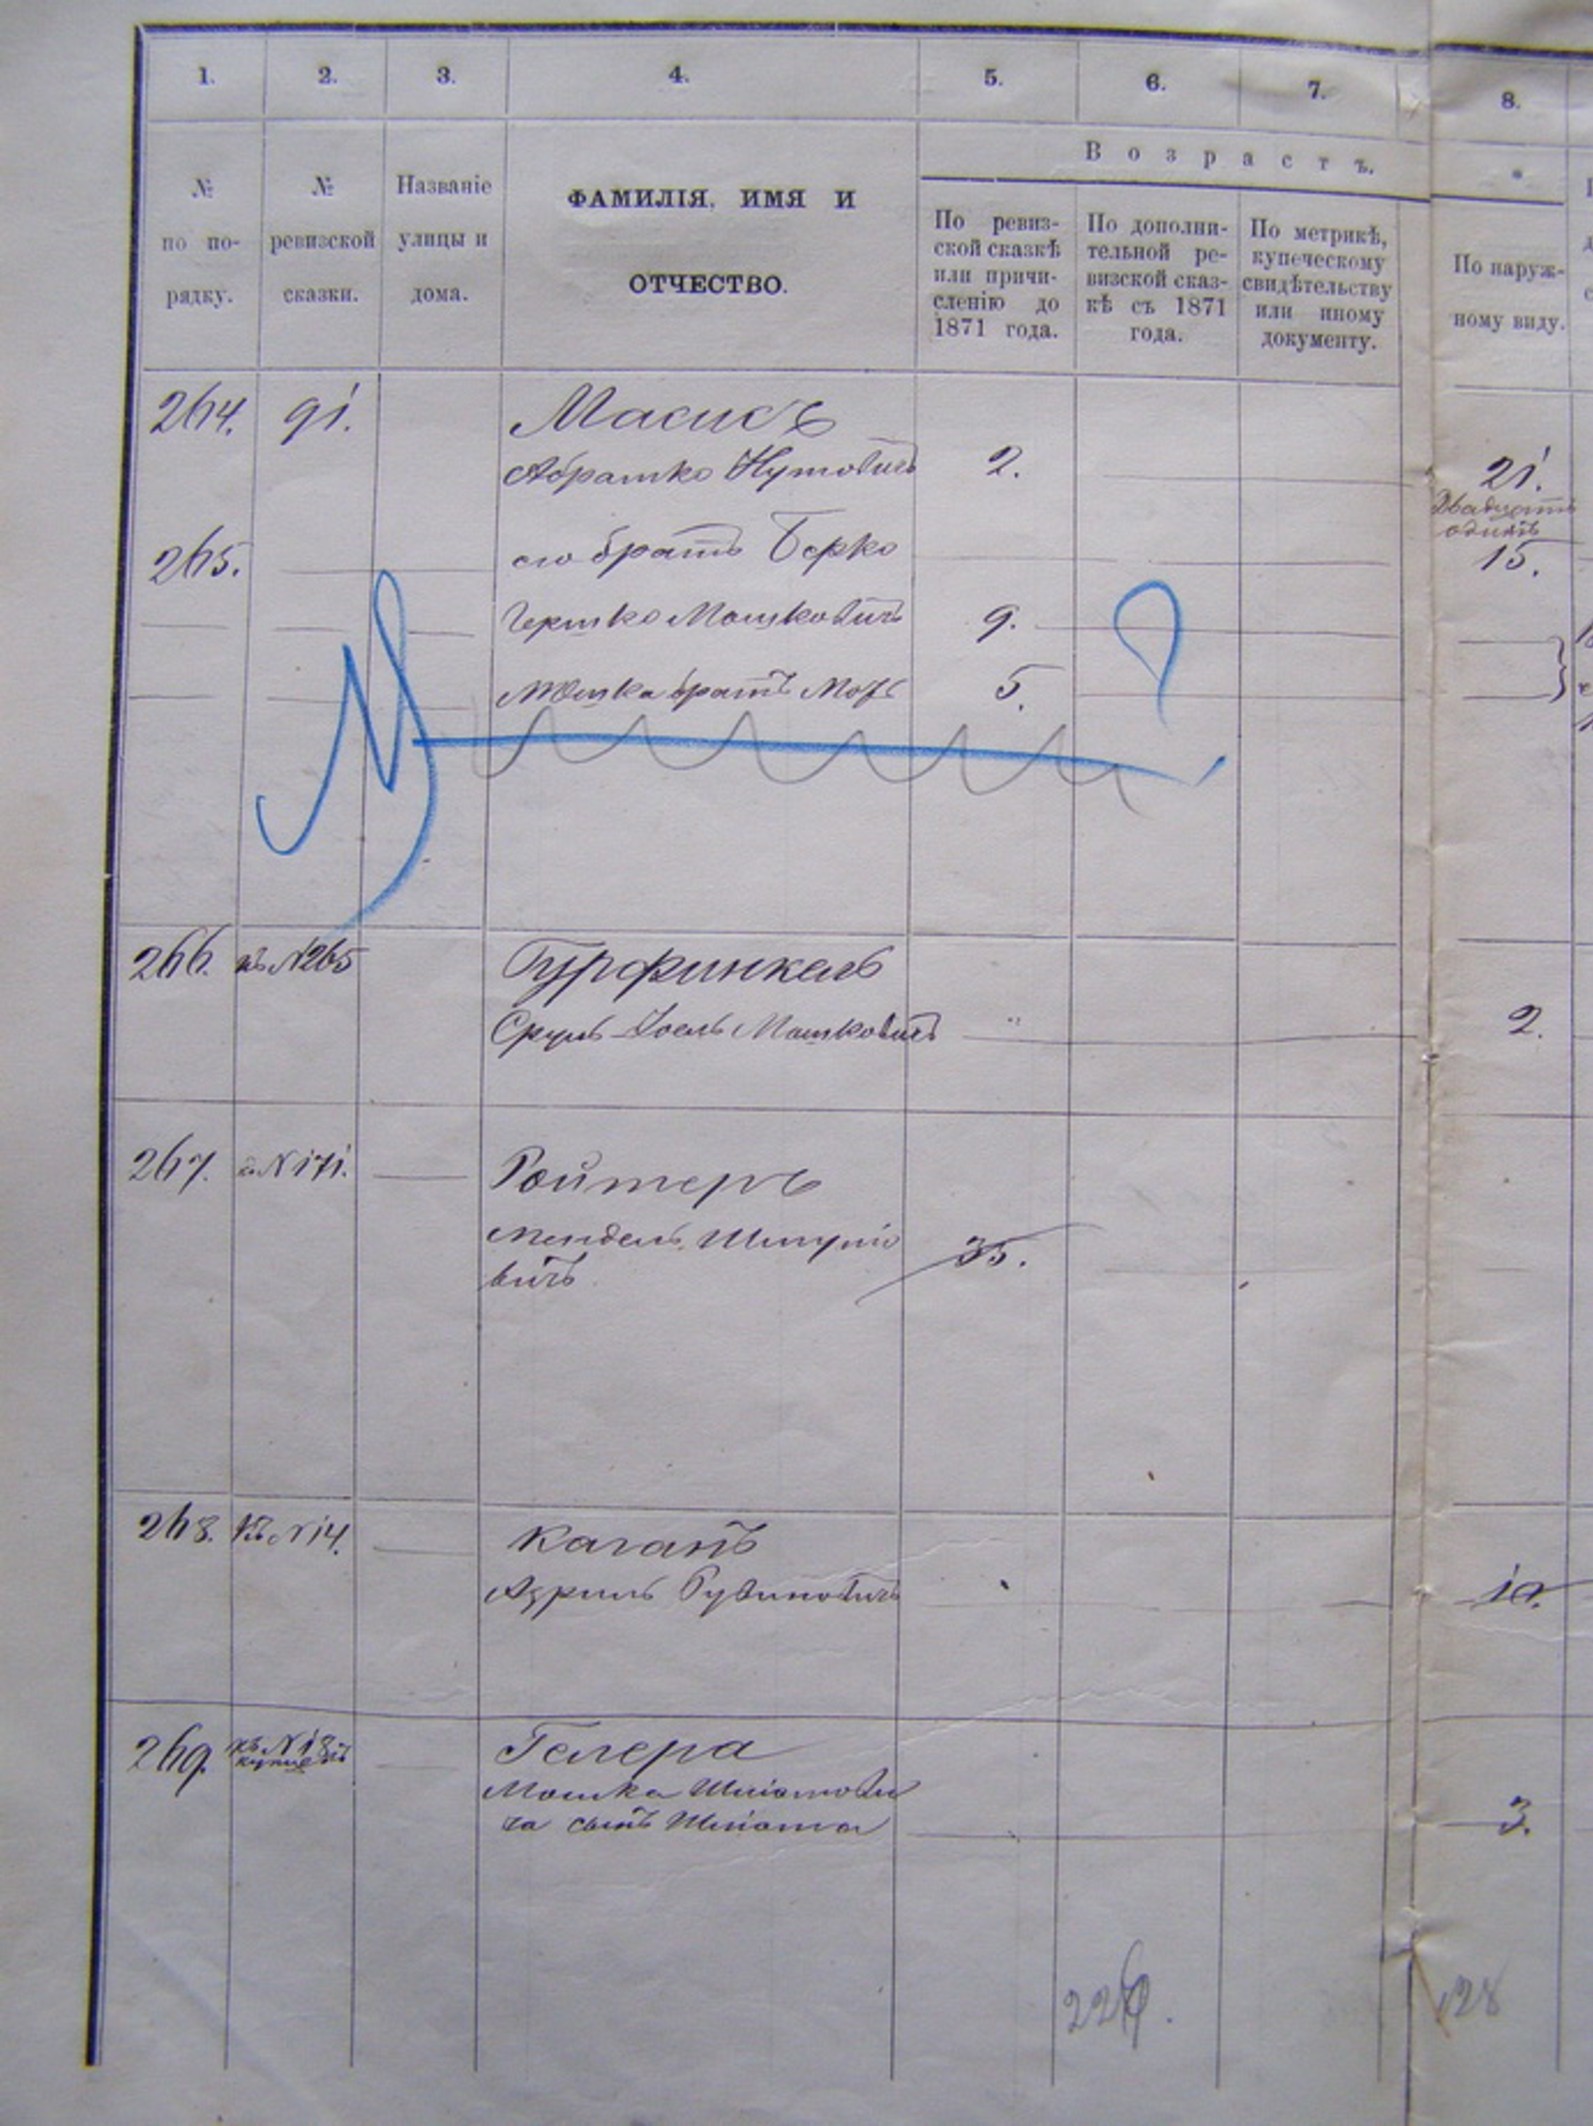 1. 2. 3. 4. 5. 6. 7. 8.
Возрастъ.
№ по по-рядку.
№ ревизской сказки.
Названіе улицы и дома.
ФАМИЛІЯ, ИМЯ И
ОТЧЕСТВО.
По ревиз-
ской сказкѣ
или причи-
сленію до
1871 года.
По дополни-
тельной ре-
визской сказ-
кѣ съ 1871
года.
По метрикѣ,
купеческому
свидѣтельству
или иному
документу.
По наруж-
ному виду.
264. 91. Масисъ
Абрамко Нутовичъ 2. 21.
Двадцать
одинъ
265. его братъ Берко 15.
Гершко Мошковичъ 9.
братъ 5.
266. къ №265 Гурфинкель
Сруль-Іоель Мошковичъ 2.
267. №171. Ройтеръ
Мендель
вичъ 35.
268. къ №14. Каганъ
Азриль Рувиновичъ
269. къ №18 Гелера
Мошка
ча сынъ 3.
28